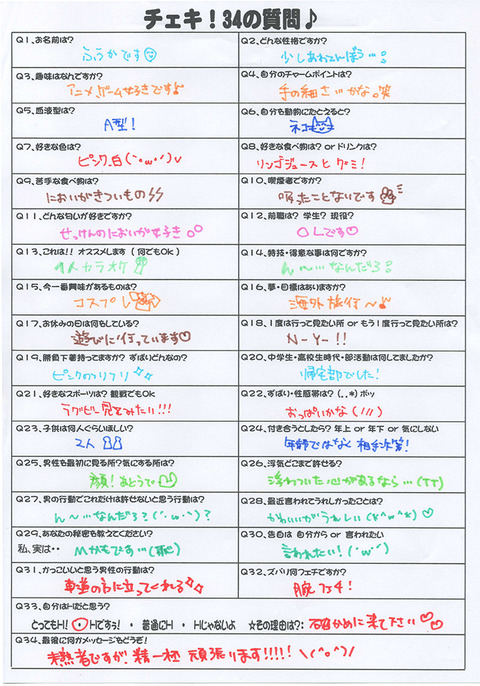 チェキ！34の質問♪
Q1、お名前は？
ふうかです
Q2、どんな性格ですか？
少しあわてんぼう…
Q3、趣味はなんですか？
アニメ、ゲームせろきです♪
Q4、自分のチャームポイントは？
手の細さ、かな。笑
Q5、血液型は？
A型！
Q6、自分も動物にたとえると？
ネコ
Q7、好きな色は？
ピンク、白(｀・ω・´)v
Q8、好きな食べ物は？ or ドリンクは？
リンゴジュースとグミ！
Q9、苦手な食べ物は？
においがきついもの
Q10、喫煙者ですか？
吸ったことないです
Q11、どんな匂いが好きですか？
せっけんのにおいがせろき
Q12、前職は？ 学生？ 現役？
OLです♡
Q13、これは!! オススメします（何でもOk）
1人カラオケ
Q14、特技・得意な事は何ですか？
ん〜…なんだろ？
Q15、今一番興味があるものは？
コスプレ
Q16、夢・目標はありますか？
海外旅行〜♪
Q17、お休みの日は何をしている？
遊びに行っています♡
Q18、1度は行って見たい所 or もう1度行って見たい所は？
N-Y-!!
Q19、勝負下着持ってますか？ ずばりどんなの？
ピンクのフリフリ
Q20、中学生・高校生時代・部活動は何してましたか？
帰宅部でした！
Q21、好きなスポーツは？ 観戦でもOk
ラグビー見てみたい!!!
Q22、ずばり・性感帯は？（..*）ポッ
おっぱいかな(///)
Q23、子供は何人ぐらいほしい？
2人
Q24、付き合うとしたら？ 年上 or 年下 or 気にしない
年齢ではなく相手次第！
Q25、男性も最初に見る所？気にする所は？
顔！あとうで
Q26、浮気どこまで許せる？
浮わついた心があるなら…(TT)
Q27、男の行動でこれだけは許せないと思う行動は？
ん〜…なんだろ？(´・ω・｀)？
Q28、最近言われてうれしかったことは？
かわいいがうれしい(*^ω^*)♡
Q29、あなたの秘密も教えてください？
私、実は‥ Mかもです…(恥)
Q30、告白は 自分から or 言われたい
言われたい！(´・ω・｀)
Q31、かっこいいと思う男性の行動は？
車道の方に立ってくれる
Q32、ズバリ何フェチですか？
腕フェチ！
Q33、自分はHだと思う？
とってもH！ ・ Hですぅ！ ・ 普通にH ・ Hじゃないよ ☆その理由は？: 確かめに来て下さい♡
Q34、最後に何かメッセージもどうぞ！
未熟者ですが、精一杯頑張ります!!!! \(^o^)/